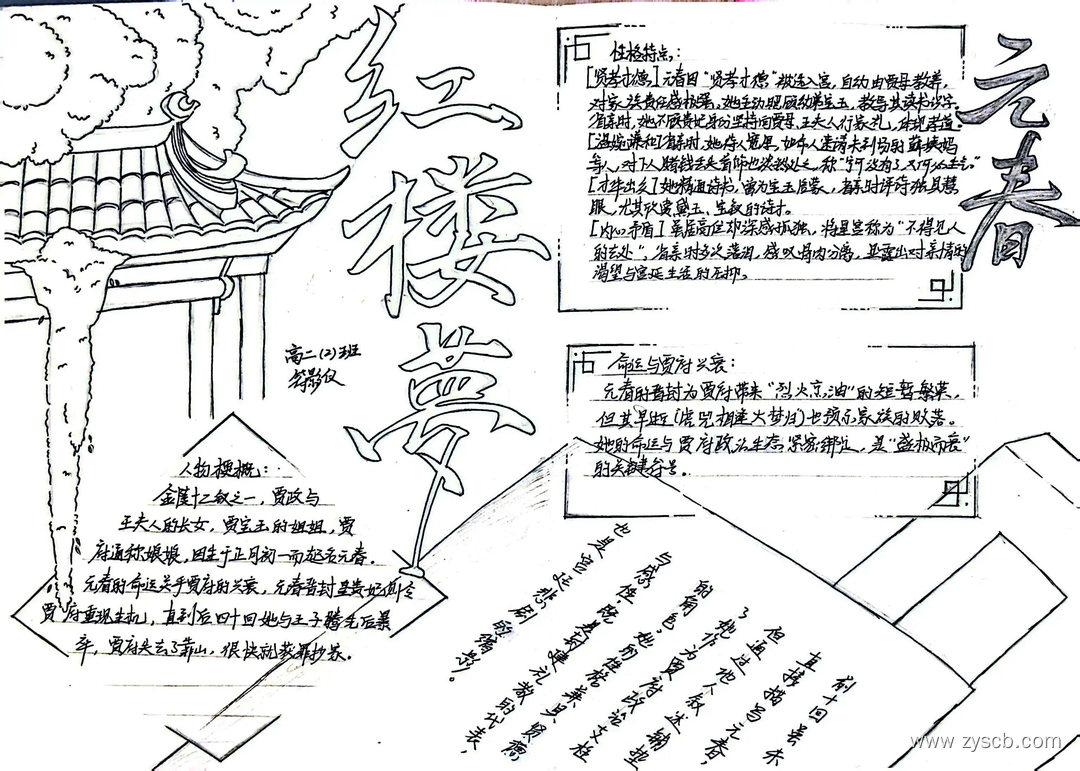 红楼梦
元春
性格特点：
[贤孝才德]元春因“贤孝才德”被选入宫，自幼由贾母教养，
对家族责任感极强。她主动照顾幼弟宝玉，教导其读书识字。
省亲时，她不顾贵妃身份坚持向贾母、王夫人行家礼，体现孝道。
[温婉谦和]省亲时，她待人宽厚，如命人邀请未到场的薛姨妈
等人，对下人赌钱丢失首饰也淡然处之，称
[才华出众]她精通诗书，曾为宝玉启蒙，省亲时评诗独具慧
眼，尤其欣赏黛玉、宝钗的诗才。
[内心矛盾]虽居高位却深感孤独，将皇宫称为“不得见人
的去处”。省亲时多次落泪，感叹骨肉分离，显露出对亲情的
渴望与宫廷生活的压抑。
高二(2)班
命运与贾府兴衰：
元春的晋封为贾府带来“烈火烹油”的短暂繁荣，
但其早逝(虎兕相逢大梦归)也预示家族的败落。
她的命运与贾府政治生态紧密绑定，是“盛极而衰”
的关键符号。
人物梗概：
金陵十二钗之一，贾政与
王夫人的长女，贾宝玉的姐姐，贾
府通称娘娘，因生于正月初一而起名元春。
元春的命运关乎贾府的兴衰，元春晋封皇贵妃则令
贾府重现生机，直到后四十回她与王子腾先后暴
卒，贾府失去了靠山，很快就获罪抄家。
前十回虽未
直接描写元春，
但通过他人叙述铺垫
了她作为贾府政治支柱
的角色。她的性格兼具贤德
与感性，既是封建礼教的代表，
也是宫廷悲剧的缩影。
www.zyscb.com